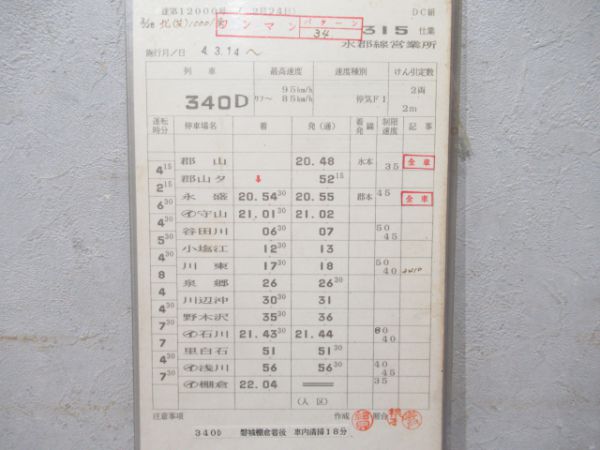 達第12000号 (2月24日) DC組
ワンマン パターン 34 315 仕業
水郡線営業所
施行月/日 4.3.14〜
列車 最高速度 速度種別 けん引定数
340D 95km/h 85km/h 停気F1 2両 2m
運転時分 停車場名 着 発(通) 着発線 制限速度 記事
郡山 20.48 水本 35 全車
4 15 郡山タ ↓ 52 15
2 15 永盛 20.54 30 20.55 郡本 45 全車
6 30 ㋑守山 21.01 30 21.02
4 30 谷田川 06 30 07 50 45
5 30 小塩江 12 30 13
4 30 川東 17 30 18 50 40
8 泉郷 26 26 30
4 川辺沖 30 30 31
4 野木沢 35 30 36
7 ㋑石川 21.43 30 21.44 60 40
7 30 里白石 51 51 30
4 30 ㋑浅川 56 56 30 40 45
7 30 ㋑棚倉 22.04 35
(人区)
注意事項 作成 照合
340D 磐城棚倉着後 車内清掃18分